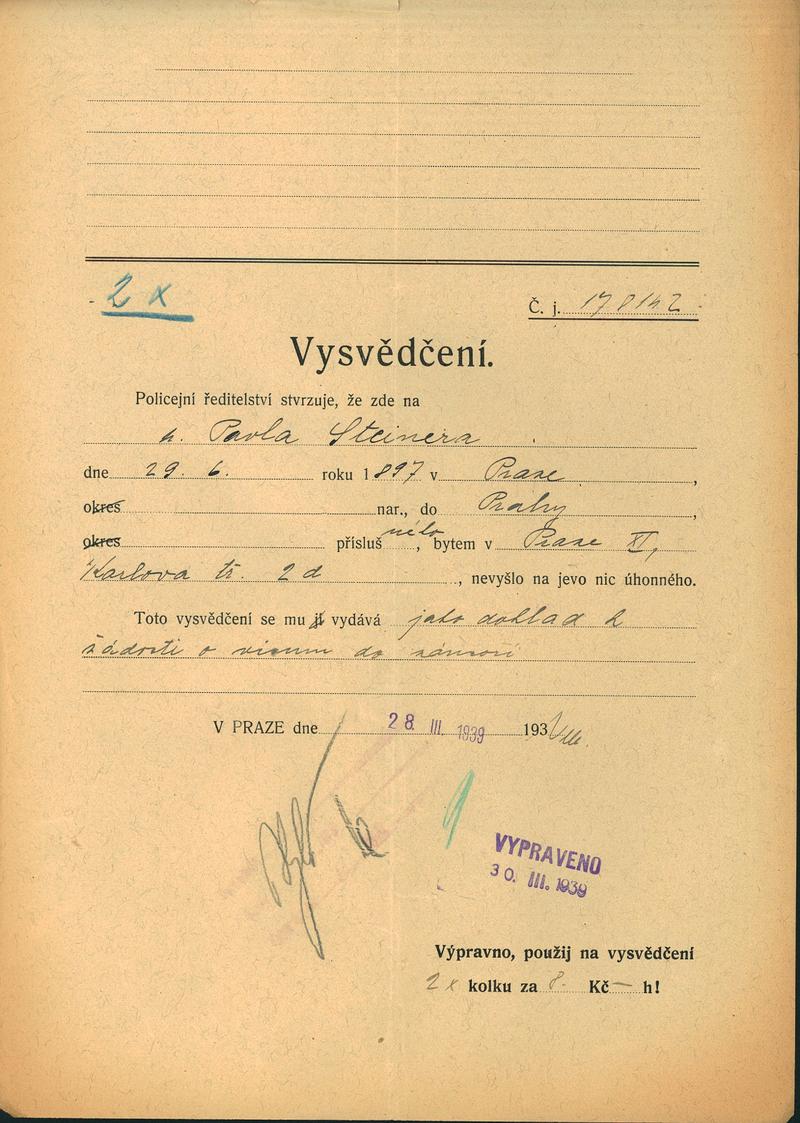 2 x
Č. j. 178142
Vysvědčení.
Policejní ředitelství stvrzuje, že zde na
p. Pavla Steinera
dne 29. 6. roku 1897 v Praze,
okres nar., do Prahy,
okres přísluš ného, bytem v Praze XI,
Karlova tř. 2 d, nevyšlo na jevo nic úhonného.
Toto vysvědčení se mu jí vydává jako doklad k
žádosti o visum do zámoří
V PRAZE dne 28 III. 1939 193
VYPRAVENO
30. III. 1939
Výpravno, použij na vysvědčení
2 x kolku za 8 Kč — h!